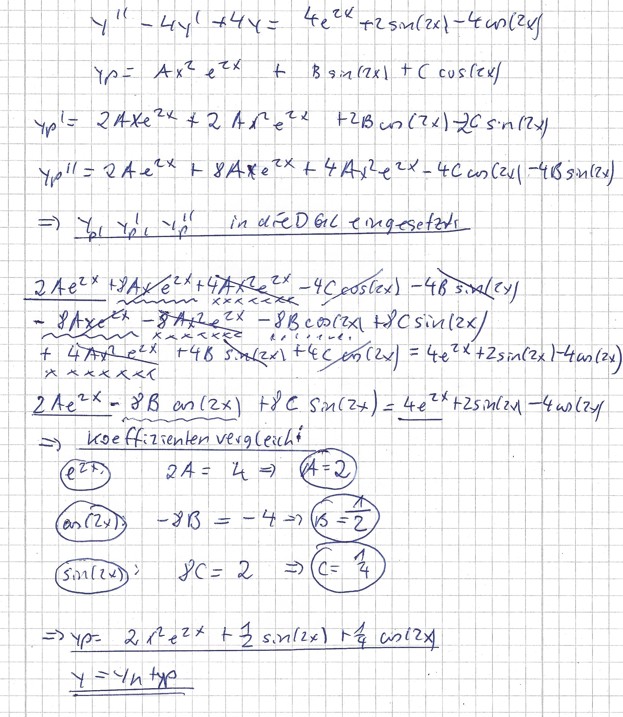 y'' - 4y' + 4y = 4e^{2x} + 2 sin(2x) - 4 cos(2x)
yp = Ax² e^{2x} + B sin(2x) + C cos(2x)
yp' = 2Axe^{2x} + 2Ax²e^{2x} + 2B cos(2x) - 2C sin(2x)
yp'' = 2Ae^{2x} + 8Axe^{2x} + 4Ax²e^{2x} - 4C cos(2x) - 4B sin(2x)
=> yp, yp', yp'' in die DGL eingesetzt:
2Ae^{2x} + 8Axe^{2x} + 4Ax²e^{2x} - 4C cos(2x) - 4B sin(2x)
- 8Axe^{2x} - 8Ax²e^{2x} - 8B cos(2x) + 8C sin(2x)
+ 4Ax²e^{2x} + 4B sin(2x) + 4C cos(2x) = 4e^{2x} + 2 sin(2x) - 4 cos(2x)
2Ae^{2x} - 8B cos(2x) + 8C sin(2x) = 4e^{2x} + 2 sin(2x) - 4 cos(2x)
=> Koeffizientenvergleich:
e^{2x}: 2A = 4 => A = 2
cos(2x): -8B = -4 => B = 1/2
sin(2x): 8C = 2 => C = 1/4
=> yp = 2x²e^{2x} + 1/2 sin(2x) + 1/4 cos(2x)
y = yh + yp